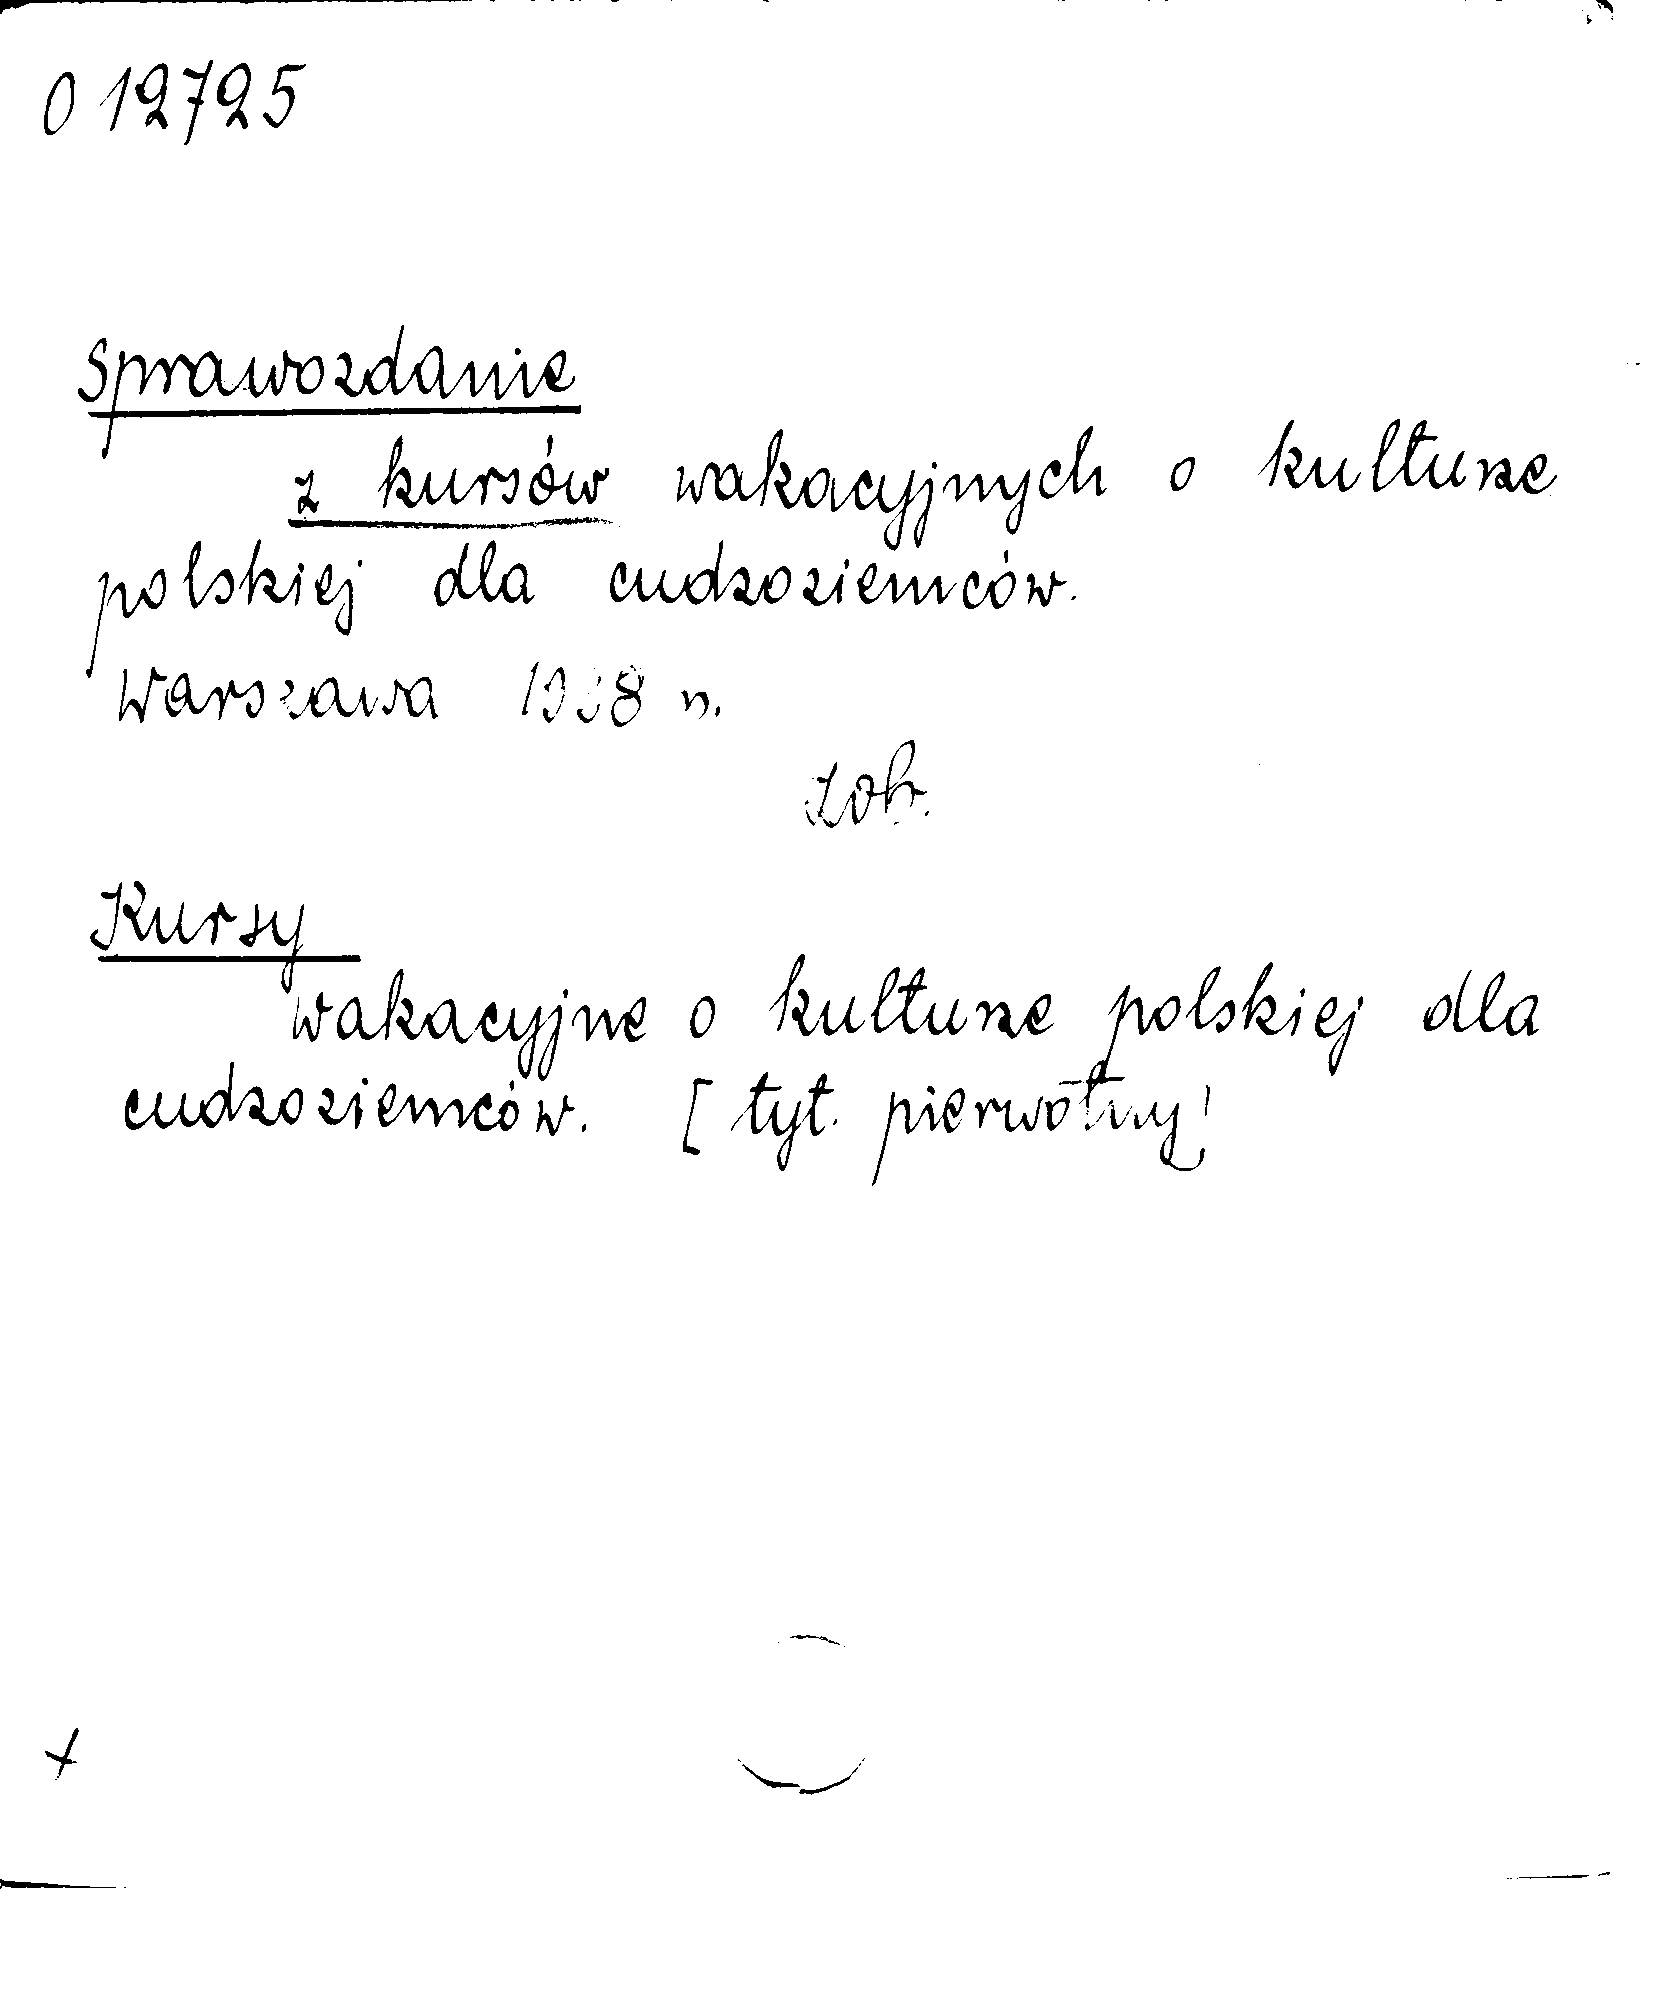 0 12725
Sprawozdanie
z kursów wakacyjnych o kulturze
polskiej dla cudzoziemców.
Warszawa 1938 r.
Zob.
Kursy
wakacyjne o kulturze polskiej dla
cudzoziemców. [tyt. pierwotny]
+